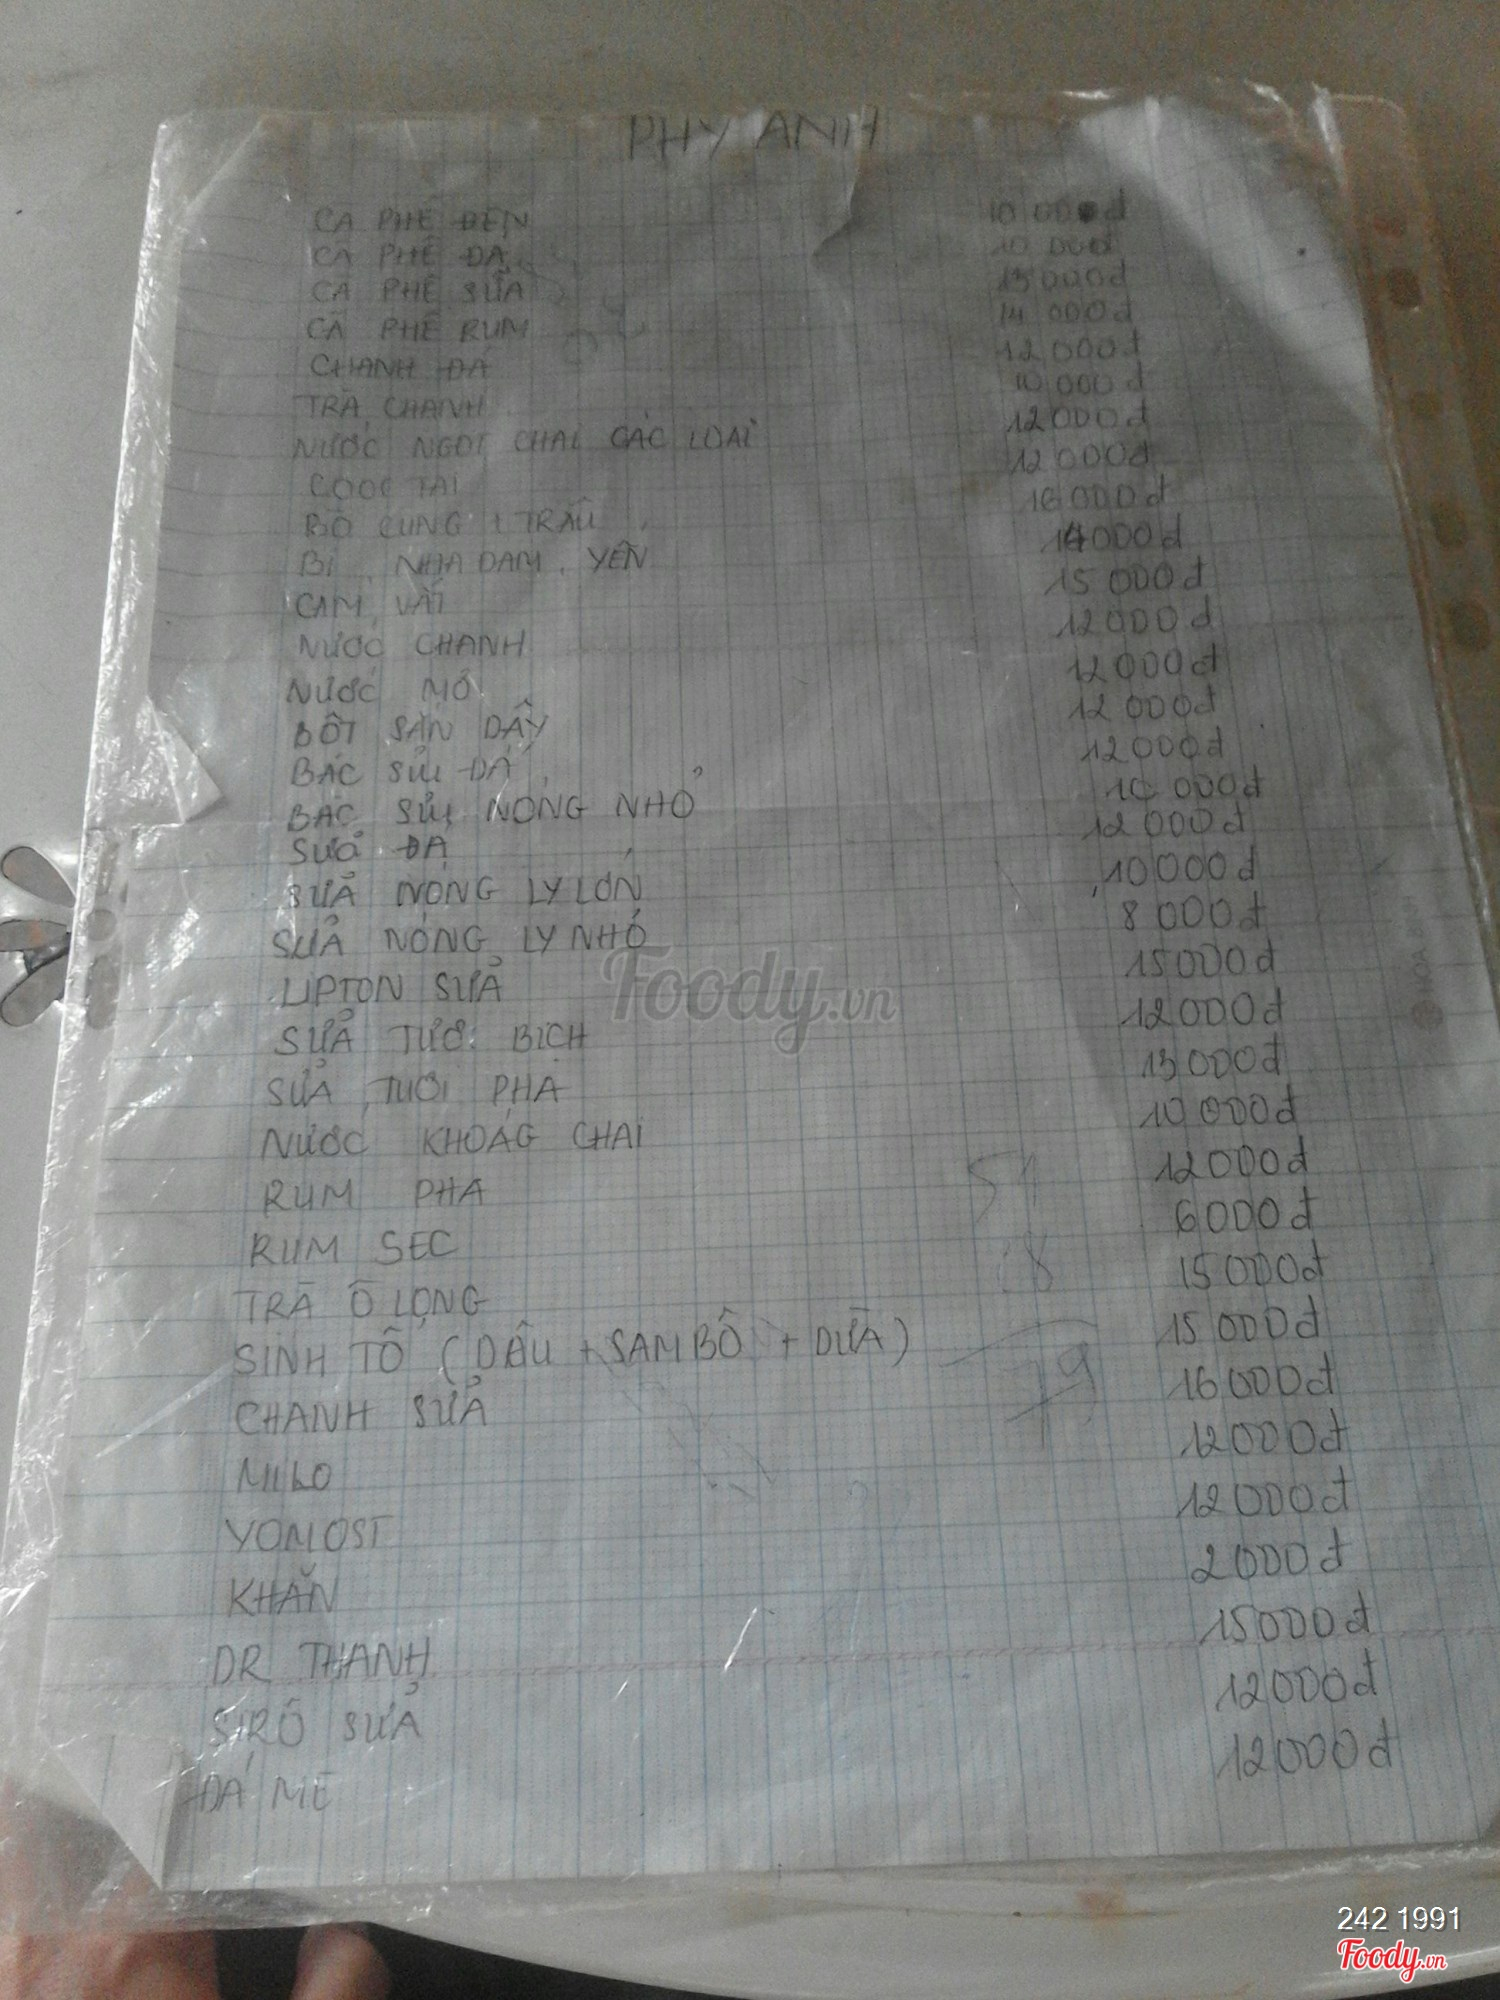 PHY ANH
CÀ PHÊ ĐEN 10 000đ
CÀ PHÊ ĐÁ 10 000đ
CÀ PHÊ SỮA 13000đ
CÀ PHÊ RUM 14 000đ
CHANH ĐÁ 12000đ
TRÀ CHANH 10 000đ
NƯỚC NGỌT CHAI CÁC LOẠI 12000đ
COOC TAI 12000đ
BÒ CỤNG 1 TRÂU 16000đ
BÍ, NHA DAM, YẾN 14000đ
CAM VẮT 15000đ
NƯỚC CHANH 12000đ
NƯỚC MƠ 12000đ
BỘT SẮN DÂY 12000đ
BẠC SỈU ĐÁ 12000đ
BẠC SỈU NÓNG NHỎ 10 000đ
SƯẢ ĐÁ 12000đ
SƯẢ NÓNG LY LỚN 10000đ
SƯẢ NÓNG LY NHỎ 8 000đ
LIPTON SƯẢ 15000đ
SƯẢ TƯƠI BỊCH 12000đ
SƯẢ TƯƠI PHA 13000đ
NƯỚC KHOÁG CHAI 10 000đ
RUM PHA 12000đ
RUM SEC 6000đ
TRÀ Ô LONG 15000đ
SINH TỐ (DÂU + SAM BÔ + DỪA) 15 000đ
CHANH SƯẢ 16000đ
MILO 12000đ
YOMOST 12000đ
KHĂN 2000đ
DR THANH 15000đ
SIRÔ SƯẢ 12000đ
ĐÁ ME 12000đ
79
Foody.vn
242 1991
Foody.vn